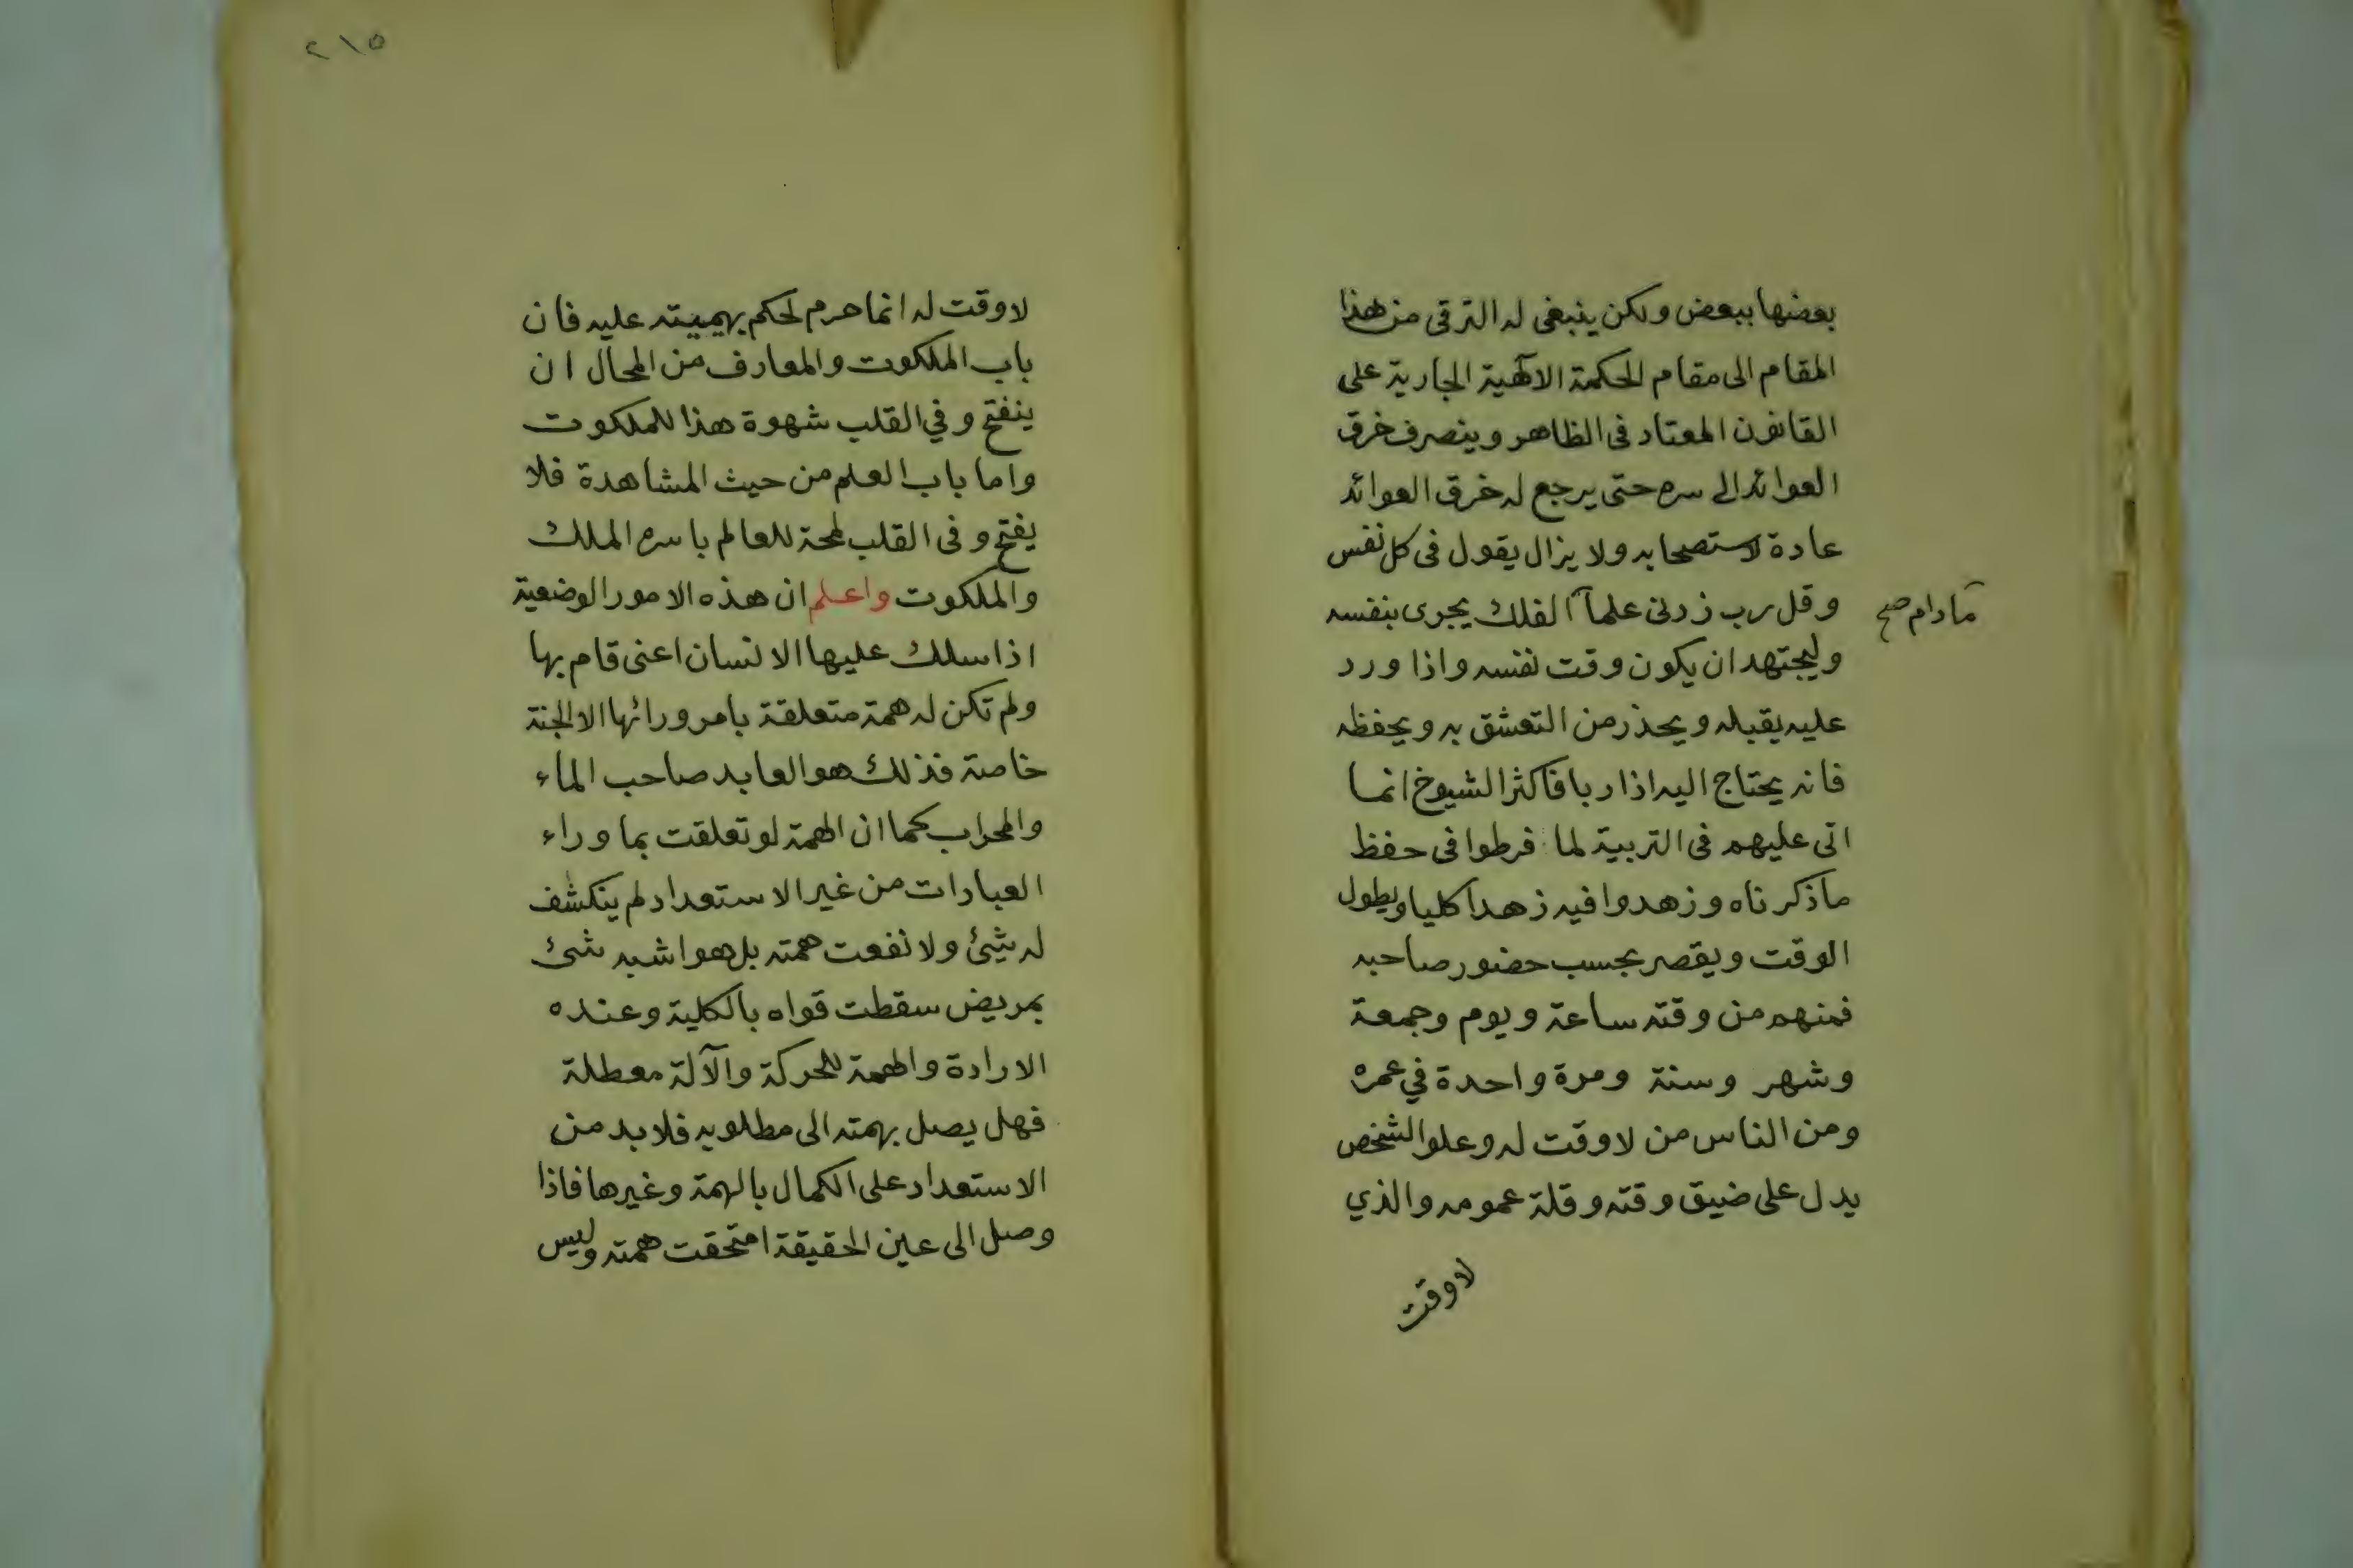 بعضها ببعض ولكن ينبغى له الترقى من هذا
المقام الى مقام الحكمة الالٓهية الجارية على
القانون المعتاد فى الظاهر وينصرف خرق
العوائد الى سره حتى يرجع له خرق العوائد
عادة لاستصحابه ولا يزال يقول فى كل نفس
وقل رب زدنى علما الفلك يجرى بنفسه
مادام صح
وليجتهد ان يكون وقت نفسه واذا ورد
عليه يقبله ويحذر من التعشق به ويحفظه
فانه يحتاج اليه اذا ربا فاكثر الشيوخ انما
اتى عليهم فى التربية لما فرطوا فى حفظ
ماذكرناه وزهدوا فيه زهدا كليا ويطول
الوقت ويقصر بحسب حضور صاحبه
فمنهم من وقته ساعة ويوم وجمعة
وشهر وسنة ومرة واحدة في عمره
ومن الناس من لا وقت له وعلو الشخص
يدل على ضيق وقته وقلة عمومه والذي
لاوقت
٢١٥
لاوقت له انما حرم لحكم بهيميته عليه فان
باب الملكوت والمعارف من المحال ان
ينفتح وفي القلب شهوة هذا للملكوت
واما باب العلم من حيث المشاهدة فلا
يفتح وفى القلب لمحة للعالم باسره الملك
والملكوت واعلم ان هذه الامور الوضعية
اذا سلك عليها الانسان اعنى قام بها
ولم تكن له همة متعلقة بامر ورائها الا الجنة
خاصة فذلك هو العابد صاحب الماء
والمحراب كما ان الهمة لو تعلقت بما وراء
العبادات من غير الاستعداد لم ينكشف
له شيئ ولا نفعت همته بل هو اشبه شئ
بمريض سقطت قواه بالكلية وعنده
الارادة والهمة للحركة والآلة معطلة
فهل يصل بهمته الى مطلوبه فلا بد من
الاستعداد على الكمال بالهمة وغيرها فاذا
وصل الى عين الحقيقة امتحقت همته وليس